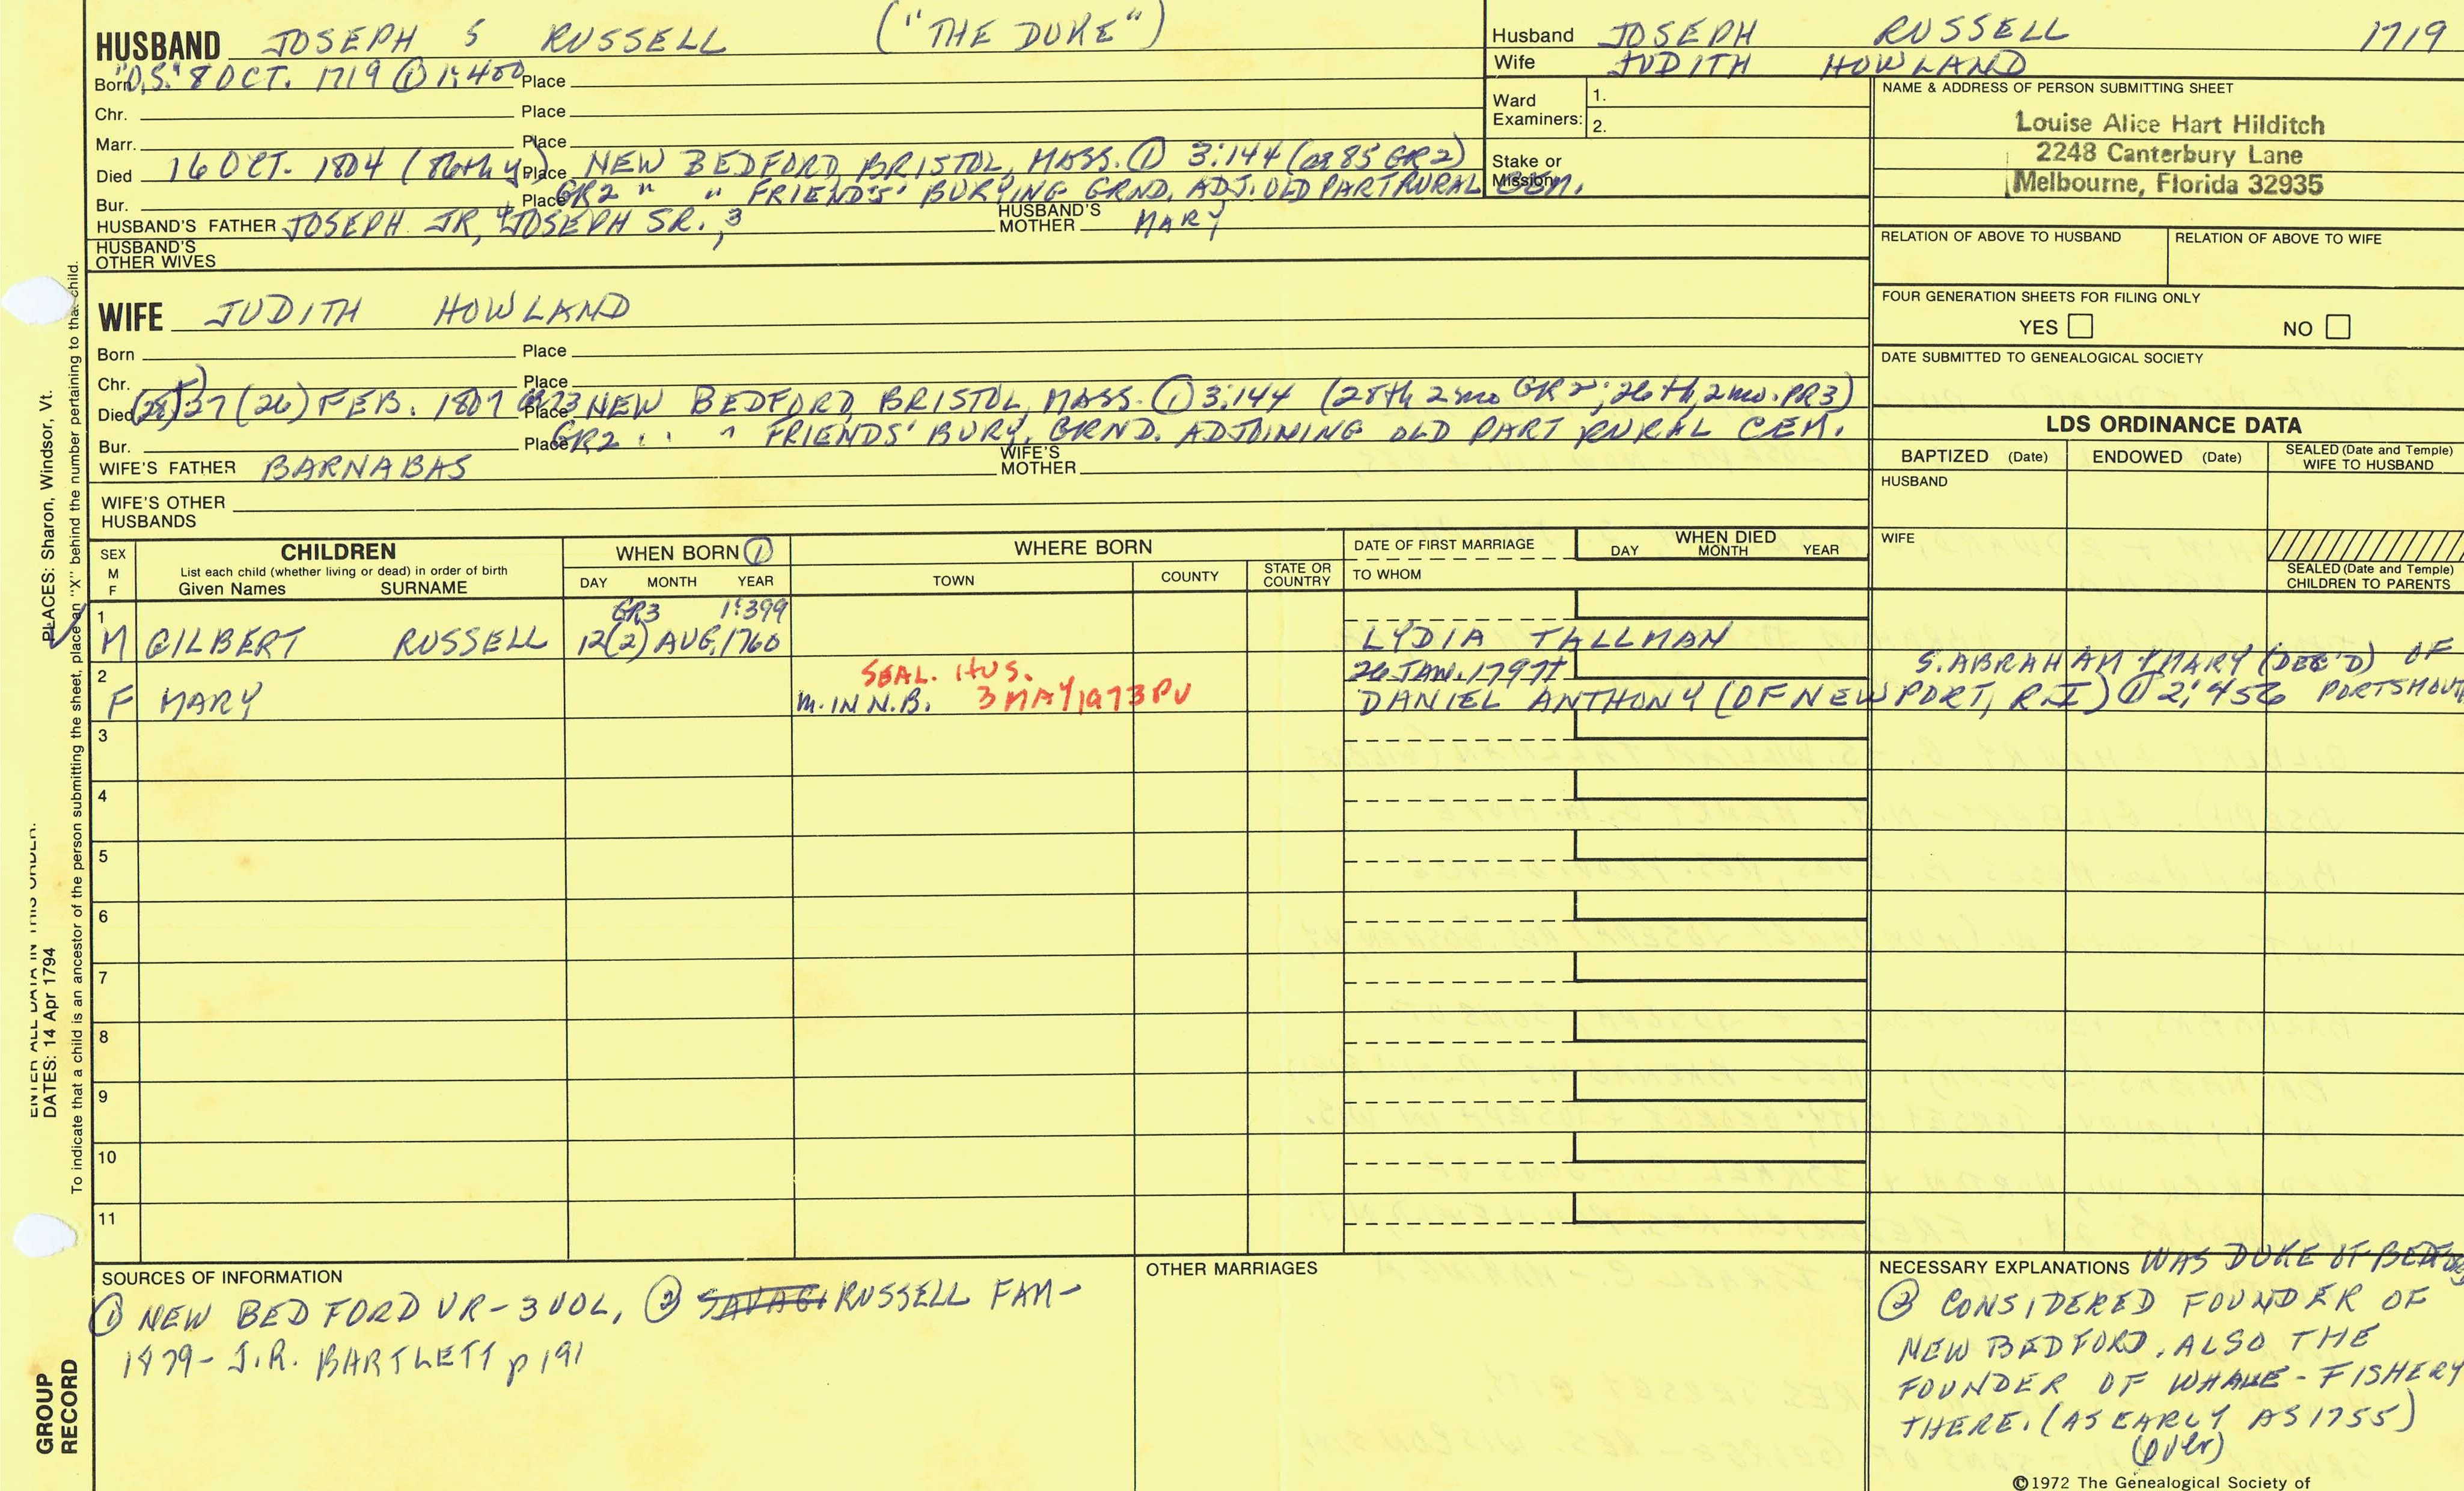 HUSBAND JOSEPH S RUSSELL ("THE DUKE")
Born "O.S." 8 OCT. 1719 ① 1:400 Place
Chr. Place
Marr. Place
Died 16 OCT. 1804 Place NEW BEDFORD, BRISTOL, MASS. ① 3:144 (ae 85 GR2)
Bur. Place GR2 " " FRIEND'S' BURYING GRND. ADJ. OLD PART RURAL CEM.
HUSBAND'S FATHER JOSEPH JR, JOSEPH SR., 3 HUSBAND'S MOTHER MARY
HUSBAND'S OTHER WIVES
WIFE JUDITH HOWLAND
Born Place
Chr. Place
Died (28) 27 (26) FEB. 1807 Place NEW BEDFORD, BRISTOL, MASS. ① 3:144 (28th 2mo GR2; 26th, 2mo. PR3)
Bur. Place GR2 " " FRIENDS' BURY. GRND. ADJOINING OLD PART RURAL CEM.
WIFE'S FATHER BARNABAS WIFE'S MOTHER
WIFE'S OTHER HUSBANDS
Husband JOSEPH RUSSELL 1719
Wife JUDITH HOWLAND
Ward Examiners: 1.
2.
Stake or Mission
NAME & ADDRESS OF PERSON SUBMITTING SHEET
Louise Alice Hart Hilditch
2248 Canterbury Lane
Melbourne, Florida 32935
RELATION OF ABOVE TO HUSBAND RELATION OF ABOVE TO WIFE
FOUR GENERATION SHEETS FOR FILING ONLY
YES NO
DATE SUBMITTED TO GENEALOGICAL SOCIETY
LDS ORDINANCE DATA
BAPTIZED (Date) ENDOWED (Date) SEALED (Date and Temple) WIFE TO HUSBAND
HUSBAND
WIFE
SEALED (Date and Temple) CHILDREN TO PARENTS
SEX M F
CHILDREN
List each child (whether living or dead) in order of birth
Given Names SURNAME
WHEN BORN ①
DAY MONTH YEAR
WHERE BORN
TOWN COUNTY STATE OR COUNTRY
DATE OF FIRST MARRIAGE
TO WHOM
WHEN DIED
DAY MONTH YEAR
1 GR3 1:399
M GILBERT RUSSELL 12(2) AUG, 1760 LYDIA TALLMAN
2 SEAL. HUS. 26 JAN. 1797 S. ABRAHAM & MARY (DEC'D) OF
F MARY M. IN N.B. 3 MAY 1973 PV DANIEL ANTHONY (OF NEWPORT, R.I) ① 2:456 PORTSMOUTH
3
4
5
6
7
8
9
10
11
SOURCES OF INFORMATION
① NEW BEDFORD VR - 3 VOL, ② RUSSELL FAM-
1879 - J.R. BARTLETT p 191
OTHER MARRIAGES
NECESSARY EXPLANATIONS WAS DUKE OF BEDFORD
② CONSIDERED FOUNDER OF
NEW BEDFORD. ALSO THE
FOUNDER OF WHALE-FISHERY
THERE. (AS EARLY AS 1755)
(over)
©1972 The Genealogical Society of
PLACES: Sharon, Windsor, Vt.
ENTER ALL DATA IN THIS ORDER:
DATES: 14 Apr 1794
To indicate that a child is an ancestor of the person submitting the sheet, place an "X" behind the number pertaining to that child.
GROUP
RECORD